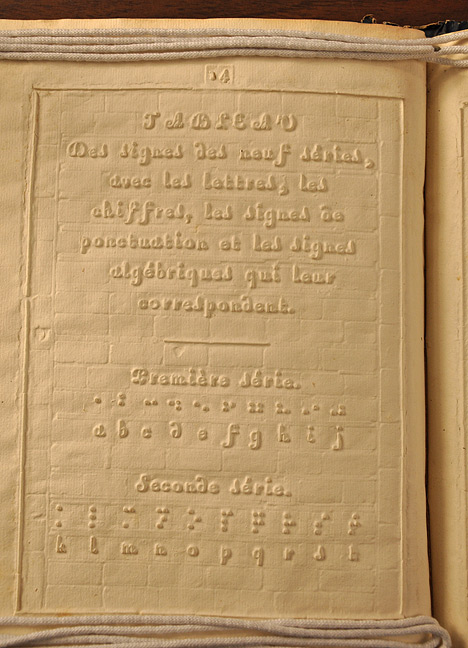 14
TABLEAU
Des signes des neuf séries,
avec les lettres, les
chiffres, les signes de
ponctuation et les signes
algébriques qui leur
correspondent.
Première série.
⠁ ⠃ ⠉ ⠙ ⠑ ⠋ ⠛ ⠓ ⠊ ⠚
a b c d e f g h i j
Seconde série.
⠅ ⠇ ⠍ ⠝ ⠕ ⠏ ⠟ ⠗ ⠎ ⠞
k l m n o p q r s t